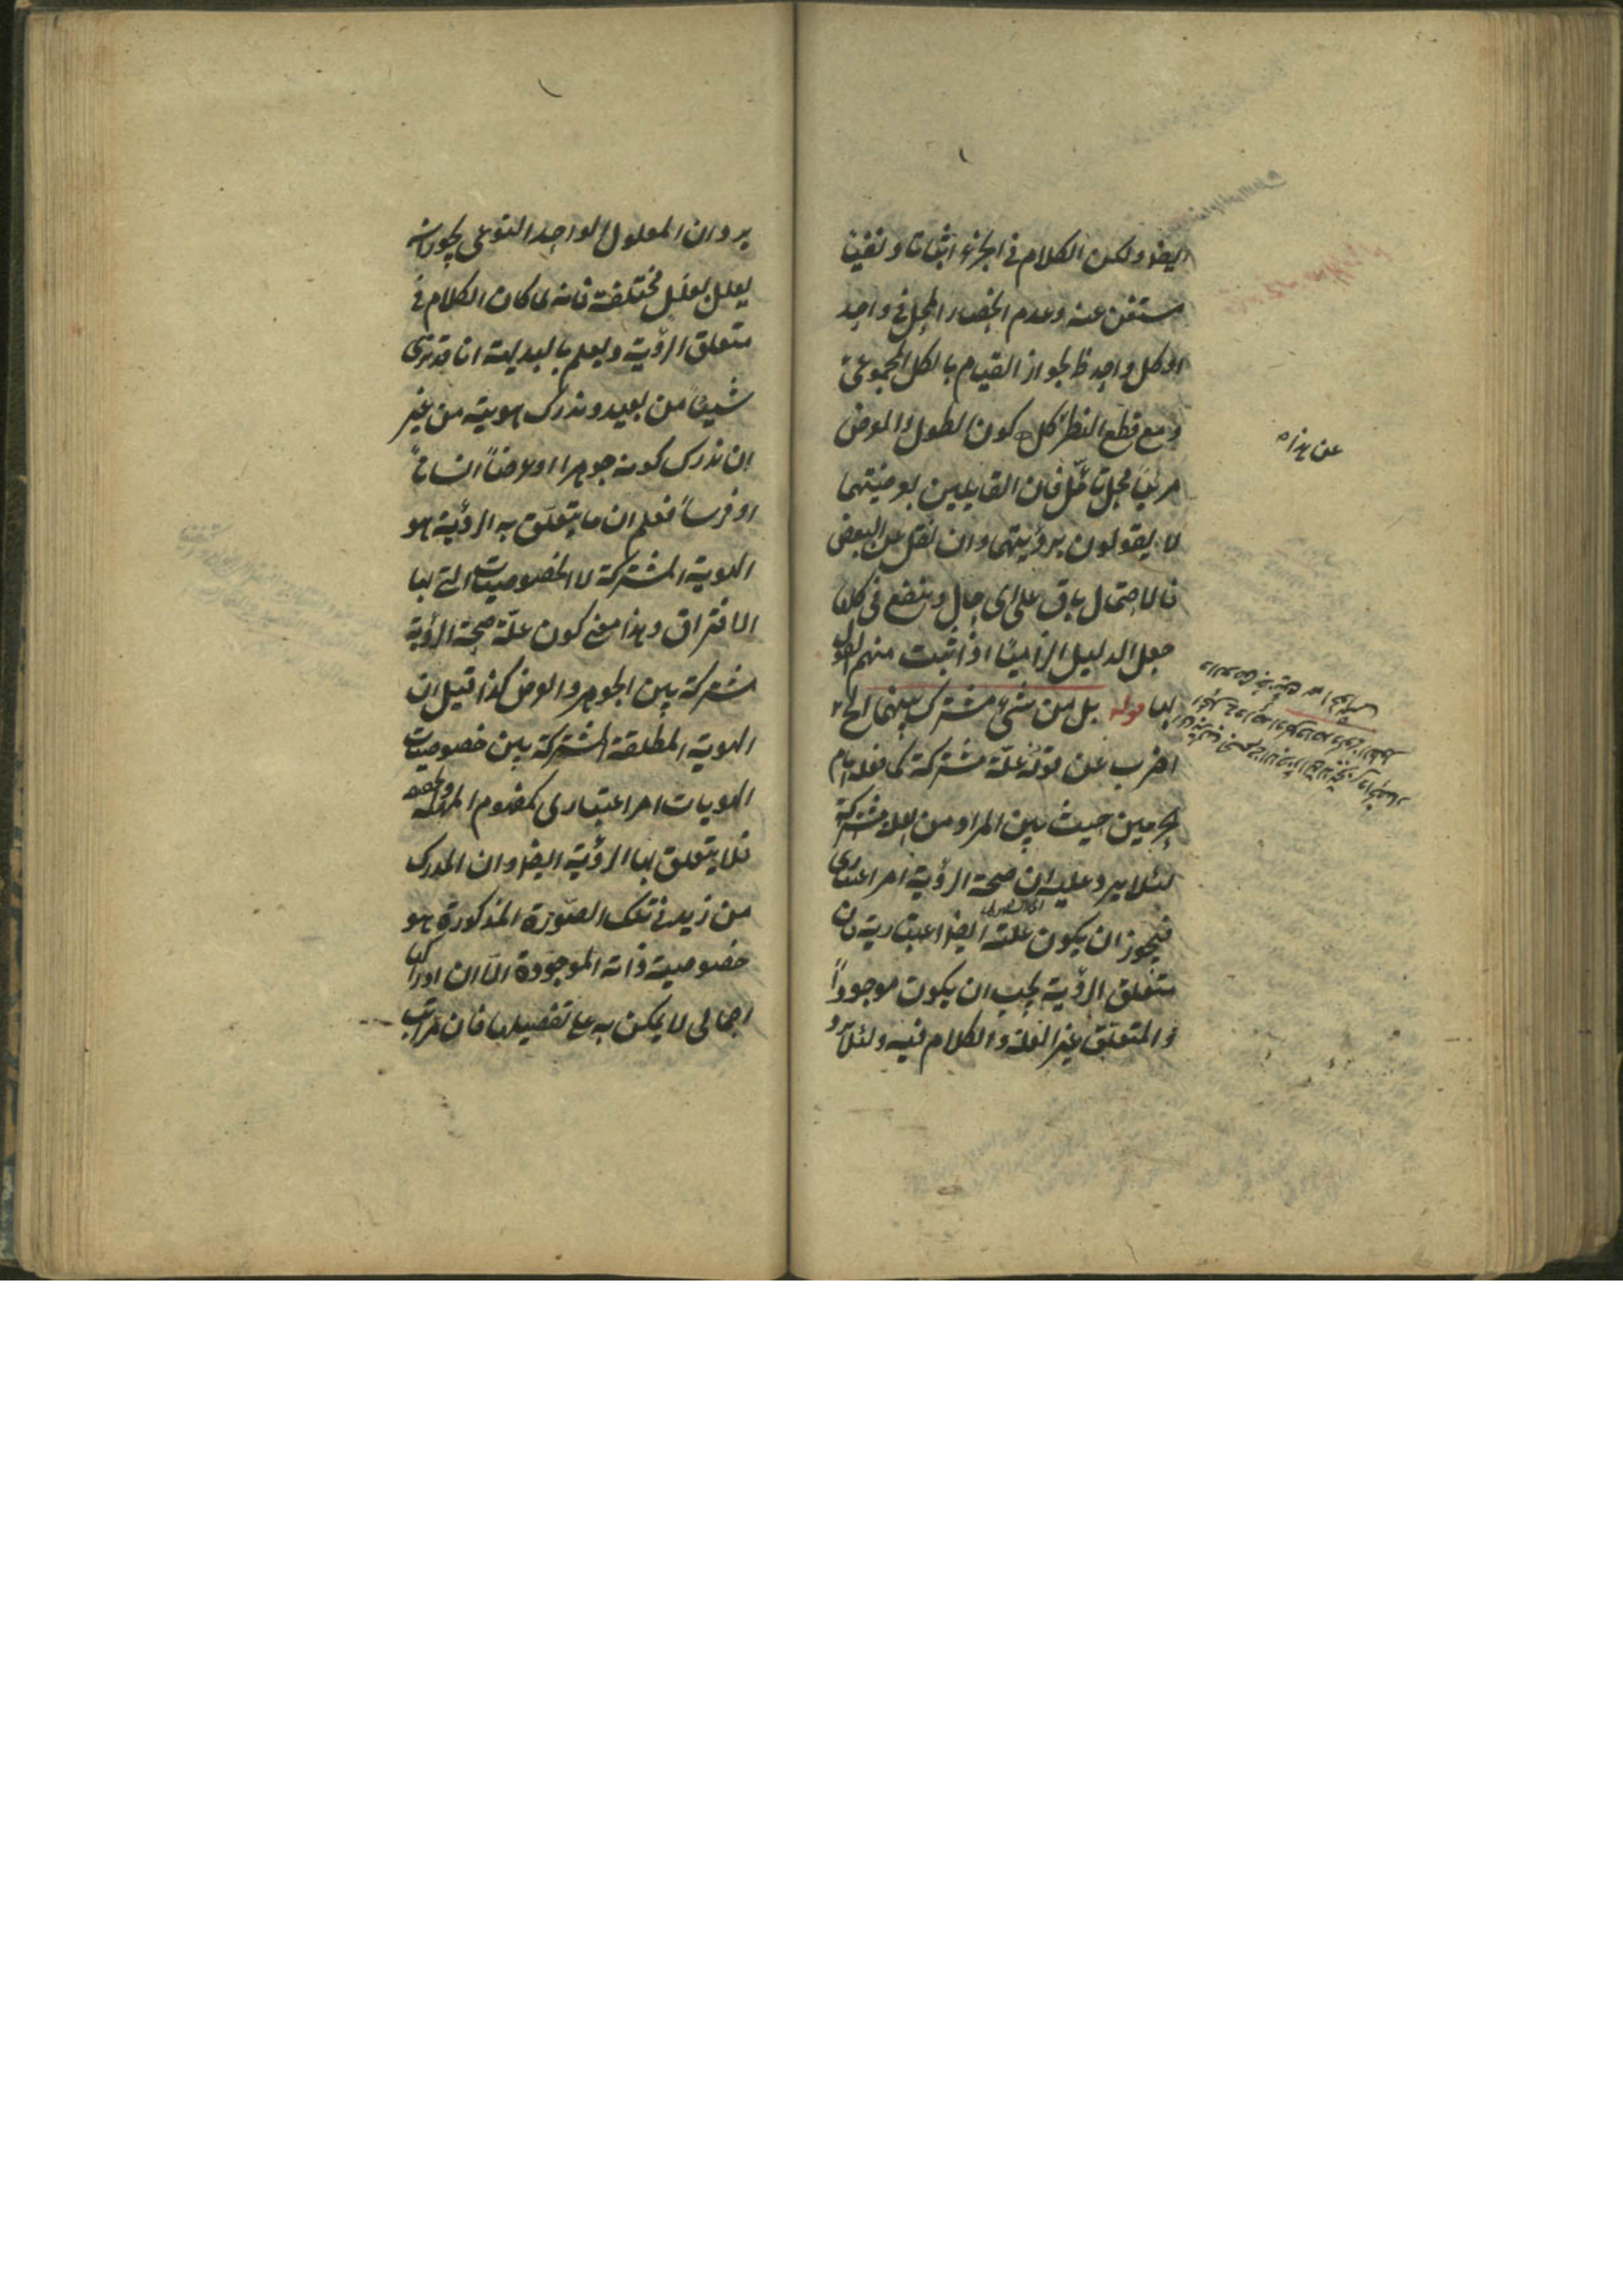 ايضا ولكن الكلام في الجزء اثباتا ونفيا
مستغن عنه وعدم انحصار المحل في واحد
او كل واحد ظ لجواز القيام بالكل المجموعي
ومع قطع النظر كل كون الطول والعرض
مرئيا محل تأمّل فان القايلين بعرضيتهما
لا يقولون برؤيتهما وان نقل عن البعض
فالاحتمال باق على اي حال وينفع في
جعل الدليل الزاميّا اذا ثبت منهم القول
بها قوله بل من شيء مشترك بينهما الخ
اضرب عن قوله علّة مشتركة كما فعله امام
الحرمين حيث بين المراد من العلة مشتركة
لئلا يرد عليه ان صحة الرؤية امر اعتباري
فيجوز ان يكون علته ايضا اعتبارية فان
متعلق الرؤية يجب ان يكون موجوداً
والمتعلق غير العلة والكلام فيه ولئلا يرد
عن هذا
يرد ان المعلول الواحد النوعي يجوز ان
يعلل بعلل مختلفة فانه لما كان الكلام في
متعلق الرؤية ويعلم بالبديهة انا قد نرى
شيئا من بعيد وندرك هويته من غير
ان ندرك كونه جوهرا او عرضاً انساناً
او فرساً فعلم ان ما يتعلّق به الرؤية هو
الهوية المشتركة لا الخصوصيات التي بها
الافتراق وهذا معنى كون علّة صحة الرؤية
مشتركة بين الجوهر والعرض كذا قيل ان
الهوية المطلقة المشتركة بين خصوصيات
الهويات امر اعتباري كمفهوم الماهية والحقيقة
فلا يتعلق بها الرؤية ايضا وان المدرك
من زيد في تلك الصّورة المذكورة هو
خصوصية ذاته الموجودة الّا ان ادراكها
اجمالي لا يمكن به على تفصيلها فان مراتب